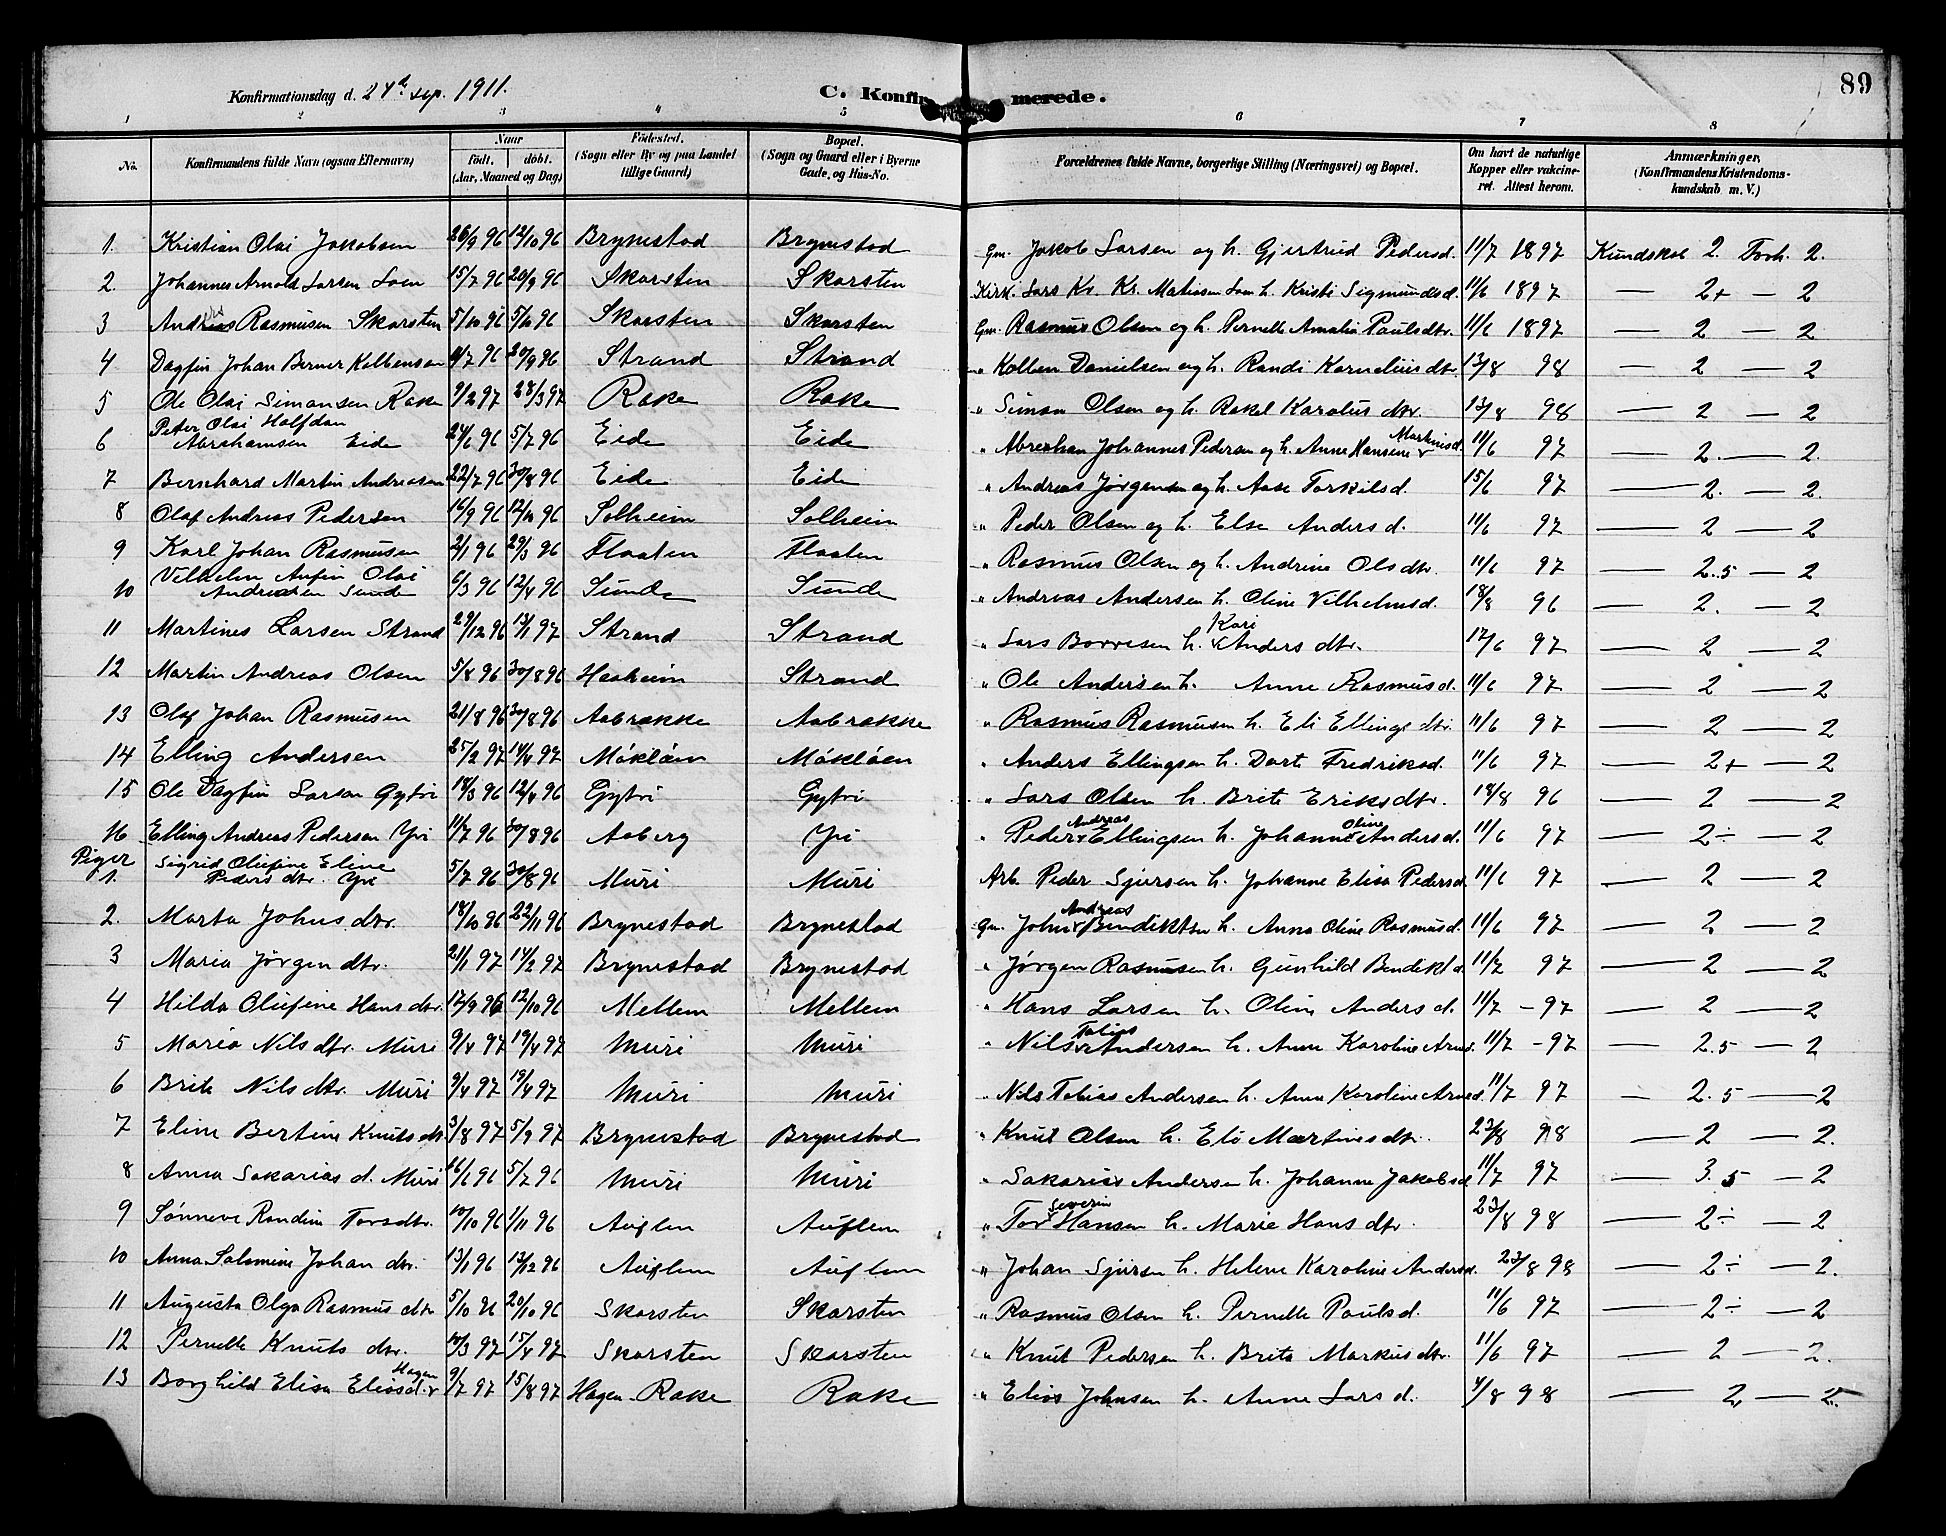 Konfirmationsdag d. 24d sep. 1911.
C. Konfirmerede.
89
1 2 3 4 5 6 7 8
No. Konfirmandens fulde Navn (ogsaa Efternavn) Naar født. døbt. (Aar, Maaned og Dag) Fødested. (Sogn eller By og paa Landet tillige Gaard) Bopæl. (Sogn og Gaard eller i Byerne Gade, og Hus-No. Forældrenes fulde Navne, borgerlige Stilling (Næringsvei) og Bopæl. Om havt de naturlige Kopper eller vakcineret. Attest herom. Anmærkninger. (Konfirmandens Kristendomskundskab m. V.)
1. Kristian Olai Jakobsen 26/9 96 12/10 96 Brynestad Brynestad Gm. Jakob Larsen og h. Gjertrud Pedersd. 11/7 1897 Kundskab 2. Forh. 2.
2. Johannes Arnold Larsen Loen 15/7 96 20/9 96 Skarsten Skarsten Kirk. Lars Kr. Kr. Matiasen Loen h. Kristi Sigmundsd. 11/6 1897 — 2+ — 2
3 Andreas Rasmusen Skarsten 5/10 96 5/10 96 Skarsten Skarsten Gm. Rasmus Olsen og h. Pernelle Amalia Paulsdtr. 11/6 1897 — 2 — 2
4 Dagfin Johan Berner Kolbensen 11/7 96 20/9 96 Strand Strand " Kolben Danielsen og h. Randi Korneliusdtr. 13/8 98 — 2 — 2
5 Ole Olai Simonsen Rake 9/2 97 28/3 97 Rake Rake " Simon Olsen og h. Rakel Karolus dtr. 13/8 98 — 2 — 2
6 Peter Olai Halfdan Abrahamsen Eide 24/6 96 5/7 96 Eide Eide " Abraham Johannes Pedersen og h. Anne Hansine Markusd. 11/6 97 — 2. — 2.
7 Bernhard Martin Andreasen 22/7 96 30/8 96 Eide Eide " Andreas Jørgensen og h. Aase Torkilsd. 15/6 97 — 2. — 2.
8 Olaf Andreas Pedersen 16/9 96 12/10 96 Solheim Solheim " Peder Olsen og h. Else Andersd. 11/6 97 — 2 — 2
9 Karl Johan Rasmusen 2/1 96 29/3 96 Flaaten Flaaten " Rasmus Olsen og h. Andrine Olsdtr. 11/6 97 — 2.5 — 2
10 Vilhelm Anfin Olai Andreasen Sunde 6/3 96 12/4 96 Sunde Sunde " Andreas Andersen h. Oline Vilhelmsd. 18/8 96 — 2. — 2
11 Martines Larsen Strand 29/12 96 17/1 97 Strand Strand " Lars Borresen h. Kari Anders dtr. 17/6 97 — 2 — 2
12 Martin Andreas Olsen 5/8 96 30/8 96 Haaheim Strand " Ole Andersen h. Anne Rasmusd. 11/6 97 — 2 — 2
13 Olaf Johan Rasmusen 21/8 96 30/8 96 Aabrække Aabrække " Rasmus Rasmusen h. Eli Ellings dtr. 11/6 97 — 2 — 2
14 Elling Andersen 25/2 97 14/4 97 Mökløen Mökløen " Anders Ellingsen h. Dort Fredriksd. 11/6 97 — 2+ — 2
15 Ole Dagfin Larsen Gytri 18/3 96 12/4 96 Gytri Gytri " Lars Olsen h. Brite Eriksdtr. 18/8 96 — 2 — 2
16 Elling Andreas Pedersen Yri 11/7 96 30/8 96 Aaberg Yri " Peder Andreas Ellingsen h. Johanne Oline Andersd. 11/6 97 — 2÷ — 2
Piger
1. Sigrid Olufine Eline Peders dtr. Yri 5/7 96 30/8 96 Muri Muri Arb. Peder Sjursen h. Johanne Elisa Pedersd. 11/6 97 — 2 — 2
2. Marta Johns dtr. 18/10 96 22/11 96 Brynestad Brynestad Gm. John Andreas Bendiktsen h. Anna Oline Rasmusd. 11/6 97 — 2 — 2
3 Maria Jørgendtr. 21/1 97 14/2 97 Brynestad Brynestad " Jørgen Rasmusen h. Gunhild Bendiktd. 11/7 97 — 2 — 2
4 Hilda Olufine Hans dtr. 17/9 96 12/10 96 Mellem Mellem " Hans Larsen h. Oline Anders d. 11/7 – 97 — 2 — 2
5 Maria Nilsdtr. Muri 9/4 97 19/4 97 Muri Muri " Nils Tobias Andersen h. Anne Karoline Arnesd. 11/7 – 97 — 2.5 — 2
6 Brite Nilsdtr. Muri 9/4 97 19/4 97 Muri Muri " Nils Tobias Andersen h. Anne Karoline Arnesd. 11/7 97 — 2.5 — 2
7 Eline Bertine Knutsdtr 3/8 97 5/9 97 Brynestad Brynestad " Knut Olsen h. Eli Martinesdtr. 23/8 98 — 2 — 2.
8 Anna Sakarias d. Muri 16/6 96 5/7 96 Muri Muri " Sakarias Andersen h. Johanne Jakobsd 11/7 97 — 3.5 — 2
9 Sønneve Randine Torsdtr. 10/10 96 1/11 96 Auflem Auflem " Tor Severin Hansen h. Marie Hans dtr. 23/8 98 — 2÷ — 2
10 Anna Salomine Johan dtr. 13/1 96 13/12 96 Auflem Auflem " Johan Sjursen h. Helene Karoline Andersd. 23/8 98 — 2÷ — 2.
11 Augusta Olga Rasmus dtr 5/10 96 20/10 96 Skarsten Skarsten " Rasmus Olsen h. Pernelle Paulsd. 11/6 97 — 2÷ — 2
12 Pernelle Knuts dtr. 10/3 97 15/4 97 Skarsten Skarsten " Knut Pedersen h. Brite Markusdtr. 11/6 97 — 2 — 2.
13 Borghild Elisa Eliasd. Hagen 9/7 97 15/8 97 Hagen Rake Rake " Elias Johnsen h. Anne Lars d. 4/8 98 — 2. — 2.